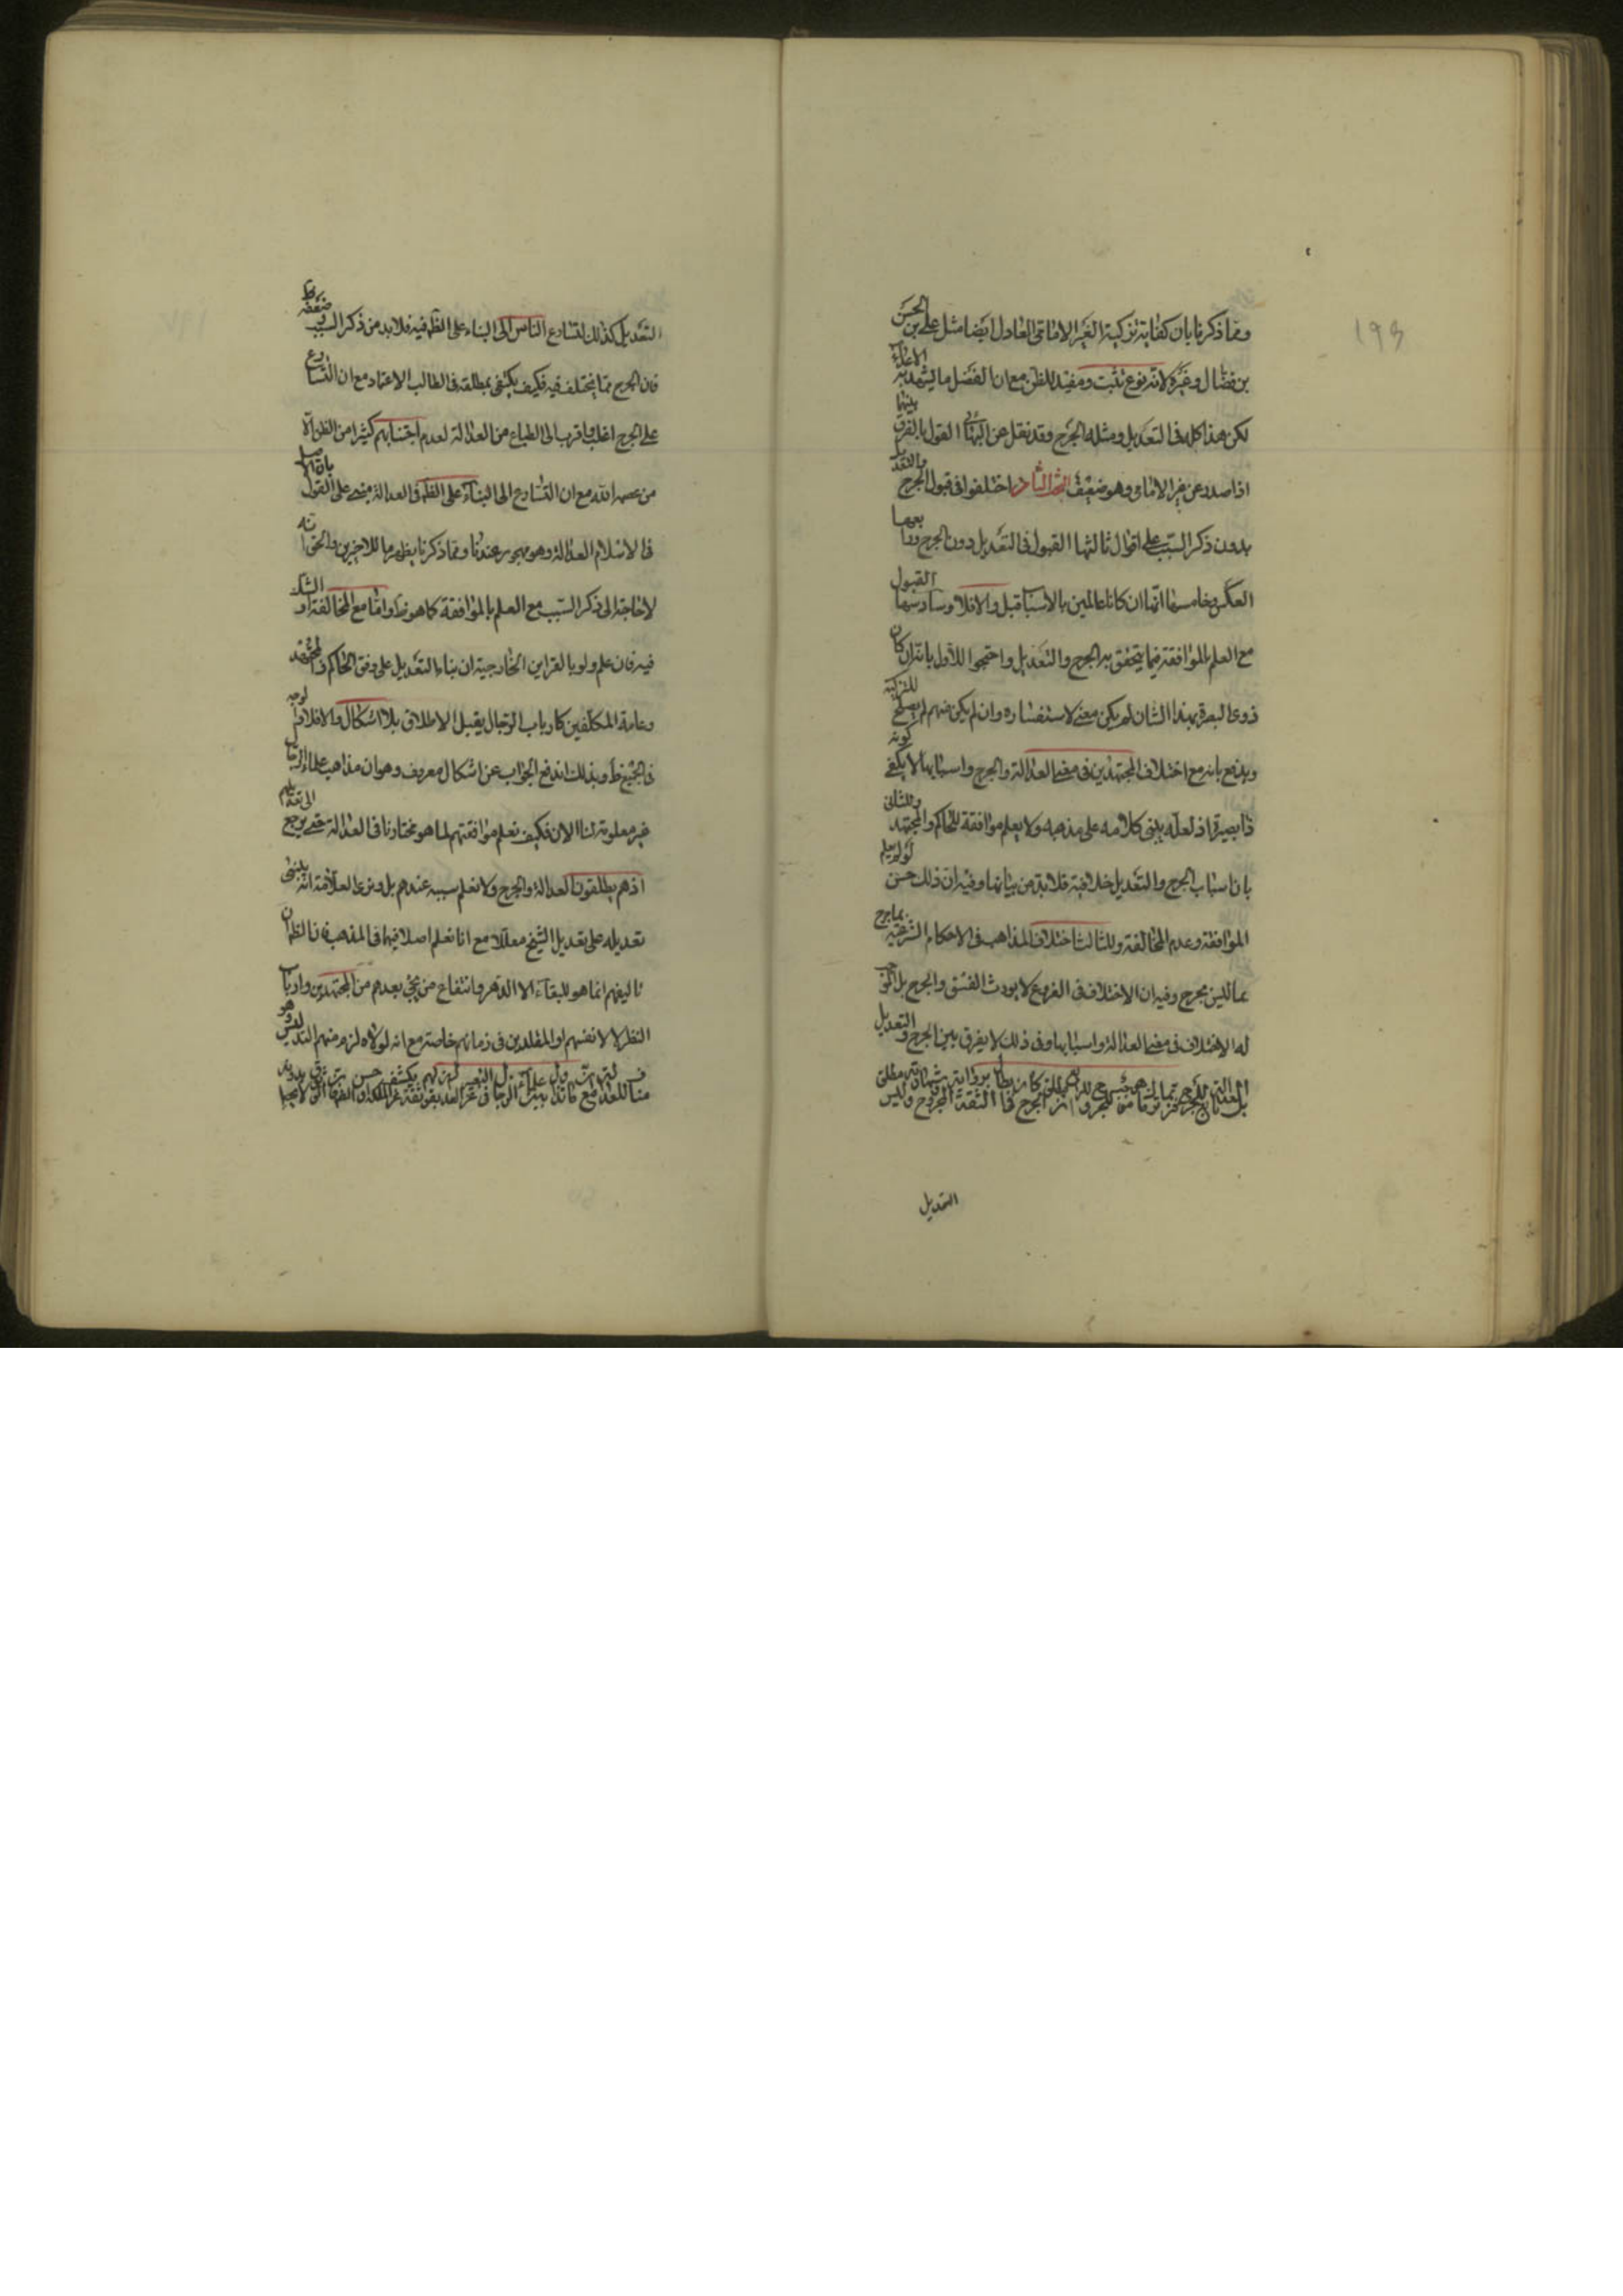 ۱۹۶
ومما ذكرنا بان كفاية تزكية الغير الامامى العادل ايضا مثل على بن الحسن
بن فضال وغيره لانه نوع تثبت ومفيد للظن مع ان الفضل ما يشهد به الاعداء
لكن هذا كله فى التعديل ومثله الجرح وقد نقل عن البهائى القول بالفرق بينهما
اذا صدر عن غير الامامى وهو ضعيف اختلفوا فى قبول الجرح والتعديل
بدون ذكر السبب على اقوال ثالثها القبول فى التعديل دون الجرح ورابعها
العكس وخامسها انهما ان كانا عالمين بالاسباب قبل والا فلا وسادسها القبول
مع العلم بالموافقة فيما يتحقق به الجرح والتعديل واحتجوا للاول بانه ان كان
ذوى البصيرة بهذا الشان لم يكن معنى لاستفساره وان لم يكن منهم لم يصلح للتزكية
ويدفع بانه مع اختلاف المجتهدين فى معنى العدالة والجرح واسبابها لا يكفى كونه
ذا بصيرة اذ لعله يبنى كلامه على مذهبه ولا يعلم موافقة للحاكم والمجتهد وللثانى
بان اسباب الجرح والتعديل خلافية فلابد من بيانها وفيه ان ذلك حسن لو لم يعلم
الموافقة وعدم المخالفة وللثالث اختلاف المذاهب فى الاحكام الشرعية بما جرح
بما ليس بجرح وفيه ان الاختلاف فى الفروع لا يورث الفسق والجرح بل الموجب
له الاختلاف فى معنى العدالة واسبابها وفى ذلك لا يفرق بين الجرح والتعديل
الجرح فى الثقة المجروح وليس
التعديل
التعديل كذلك لتسارع الناس الى البناء على الظاهر فيه فلابد من ذكر السبب
فان الجرح مما يختلف فيه فكيف يكتفى بمطلقه فى الطالب الاعتماد مع ان التسارع
على الجرح اغلب واقرب الى الطباع من العدالة لعدم اجتنابهم كثيرا من الظن الا
من عصمه الله مع ان التسارع الى البناء على الظاهر فى العدالة مبنى على القول بان الاصل
فى الاسلام العدالة وهو مهجور عندنا ومما ذكرنا يظهر ما للاخيرين والحق انه
لا حاجة الى ذكر السبب مع العلم بالموافقة كما هو ظ واما مع المخالفة او الشك
فيه فان علم ولو بالقراين الخارجية ان بناء التعديل على وفق الحاكم والمجتهد
وعامة المكلفين كارباب الرجال يقبل الاطلاق بلا اشكال والا فلا لوجه
فى الجميع ظ وبذلك اندفع الجواب عن اشكال معروف وهو ان مذاهب علماء الرجال
غير معلومة لنا الان فكيف نعلم موافقتهم لما هو مختارنا فى العدالة حتى يرجع الى تعديلهم
اذ هم يطلقون العدالة والجرح ولا نعلم سببه عندهم بل ونرى العلامة انه يبنى
تعديله على تعديل الشيخ معللا مع انا نعلم اختلافهما فى المذهب فان الظ ان
تاليفهم انما هو للبقاء الى اخر الدهر وانتفاع من يجئ بعدهم من المجتهدين وارباب
النظر لا لانفسهم او المقلدين فى زمانهم خاصة مع انه لولاه لزم منهم التدليس وهو